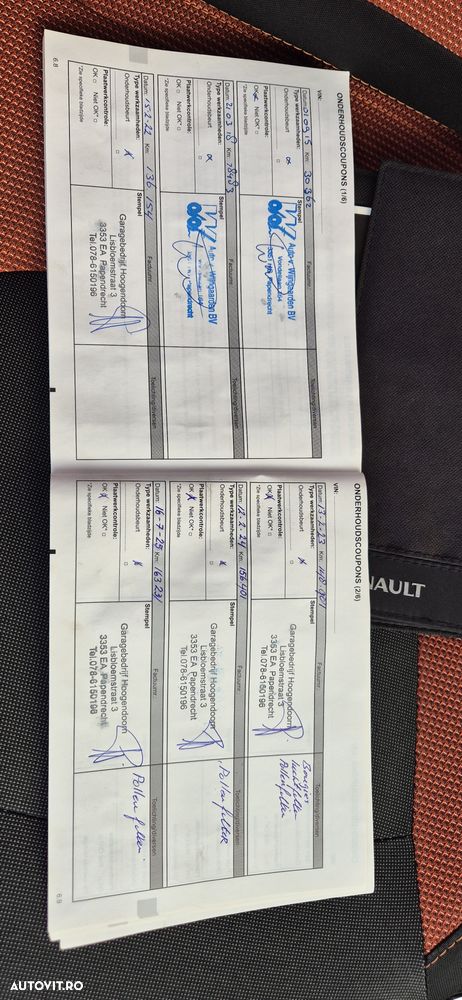 ONDERHOUDSCOUPONS (1/6)
VIN:
Datum: 01 09 15 Km: 30 362 Factuurnr: Toelichting/diversen
Type werkzaamheden: Stempel
Onderhoudsbeurt
Auto v. Wijngaarden BV
Plaatwerkcontrole:
OK Niet OK*
*Zie specifieke bladzijde
Datum: 21 03 18 Km: 78483 Factuurnr: Toelichting/diversen
Type werkzaamheden: Stempel
Onderhoudsbeurt
Auto v. Wijngaarden BV
Plaatwerkcontrole:
OK Niet OK*
*Zie specifieke bladzijde
Datum: 15-2-22 Km: 136 154 Factuurnr: Toelichting/diversen
Type werkzaamheden: Stempel
Onderhoudsbeurt
Garagebedrijf Hoogendoorn
Lisbloemstraat 3
3353 EA Papendrecht
Tel.078-6150196
Plaatwerkcontrole:
OK Niet OK*
*Zie specifieke bladzijde
6.8
ONDERHOUDSCOUPONS (2/6)
VIN:
Datum: 13-2-23 Km: Factuurnr: Toelichting/diversen
Type werkzaamheden: Stempel
Onderhoudsbeurt
Garagebedrijf Hoogendoorn
Lisbloemstraat 3
3353 EA Papendrecht
Tel.078-6150196
Bougies
Luchtfilter
Pollenfilter
Plaatwerkcontrole:
OK Niet OK*
*Zie specifieke bladzijde
Datum: 12-2-24 Km: 156401 Factuurnr: Toelichting/diversen
Type werkzaamheden: Stempel
Onderhoudsbeurt
Garagebedrijf Hoogendoorn
Lisbloemstraat 3
3353 EA Papendrecht
Tel.078-6150196
Pollenfilter
Plaatwerkcontrole:
OK Niet OK*
*Zie specifieke bladzijde
Datum: 16-7-25 Km: 163231 Factuurnr: Toelichting/diversen
Type werkzaamheden: Stempel
Onderhoudsbeurt
Garagebedrijf Hoogendoorn
Lisbloemstraat 3
3353 EA Papendrecht
Tel.078-6150196
Pollenfilter
Plaatwerkcontrole:
OK Niet OK*
*Zie specifieke bladzijde
6.9
NAULT
AUTOVIT.RO